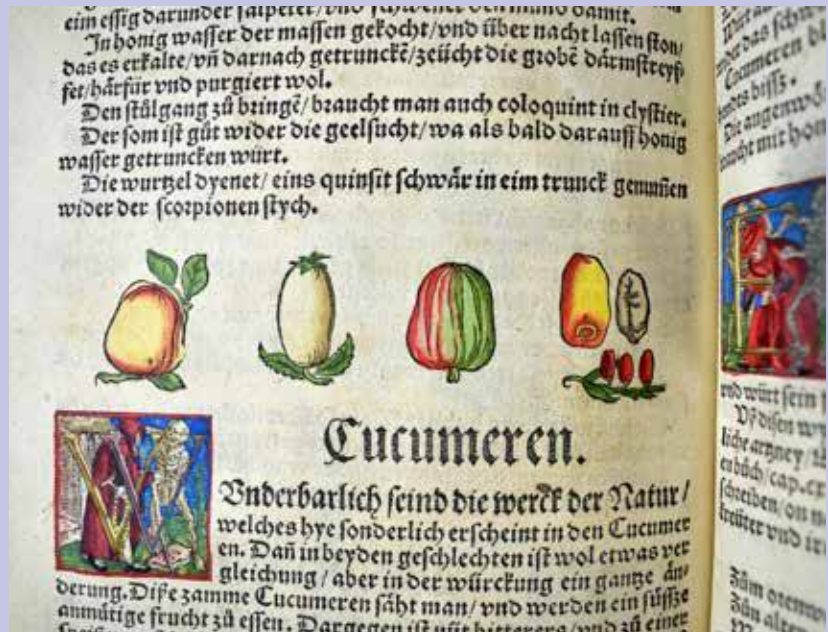 eim essig darunder salpeter/vnd schwencke den mund damit.
In honig wasser der massen gekocht/vnd über nacht lassen ston/
das es erkalte/vñ darnach getrunckẽ/zeücht die grobẽ därmstreyf
fet/härfür vnd purgiert wol.
Den stůlgang zů bringẽ/braucht man auch coloquint in clystier.
Der som ist gůt wider die geelsucht/wa als bald darauff honig
wasser getruncken würt.
Die wurtzel dyenet/eins quinsit schwär in eim trunck genum̃en
wider der scorpionen stych.
Cucumeren.
Vnderbarlich seind die werck der Natur/
welches hye sonderlich erscheint in den Cucumer
en. Dañ in beyden geschlechten ist wol etwas ver
gleichung/aber in der würckung ein gantze än
derung. Diße zamme Cucumeren säht man/vnd werden ein süsße
anmůtige frucht zů essen. Dargegen ist nüt bitterers/vnd zů einer
Cucumeren
bisss.
Die augen
macht mit hon
vnd würt sein
Vß disen
liche artzney
en bůch/cap.
schreiben/on
kreüter vnd
Zům
Zům alten